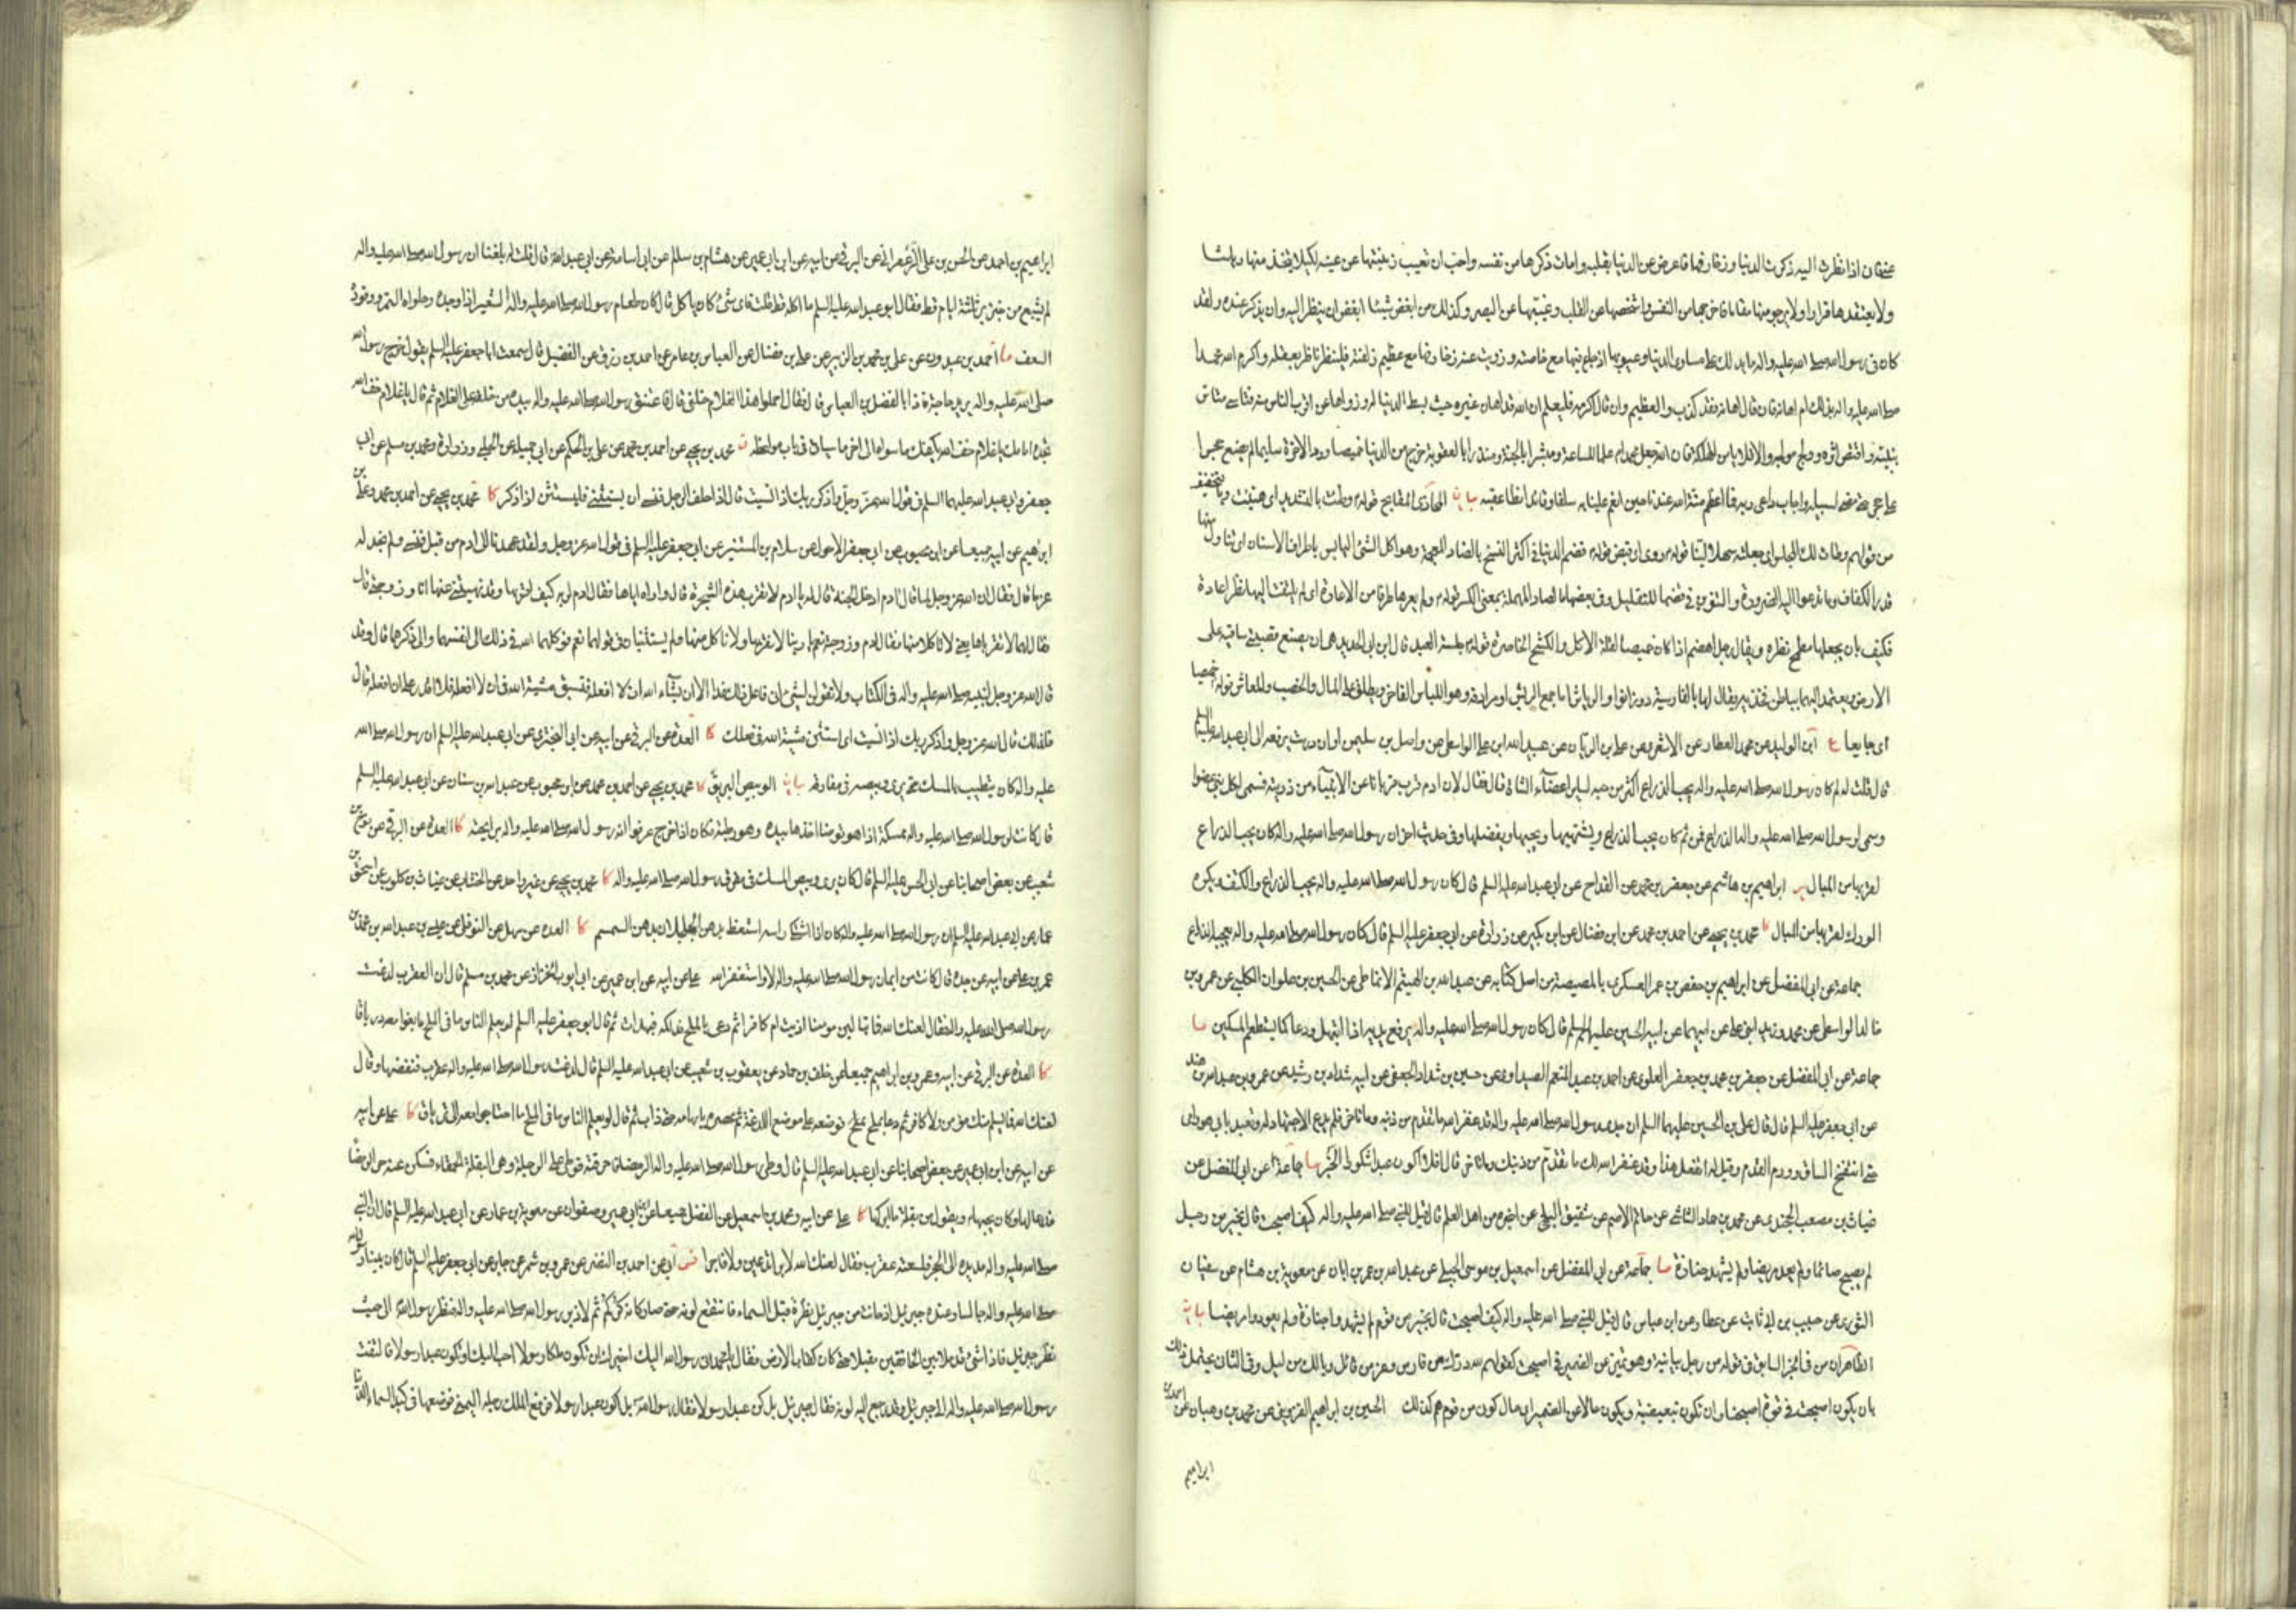 عنفان اذا نظرت اليه ذكرت الدنيا وزخارفها فاعرض عن الدنيا بقلبه وامات ذكرها من نفسه واحب ان تغيب زينتها عن عينه لكيلا يتخذ منها رياشا
ولا يعتقدها قرارا ولا يرجو منها مقاما فاخرجها من النفس واشخصها عن القلب وغيبها عن البصر وكذلك من ابغض شيئا ابغض ان ينظر اليه وان يذكر عنده ولقد
كان فى رسول الله صلى الله عليه واله ما يدلك على مساوى الدنيا وعيوبها اذ جاع فيها مع خاصته وزويت عنه زخارفها مع عظيم زلفته فلينظر ناظر بعقله اكرم الله محمدا
صلى الله عليه واله بذلك ام اهانه فان قال اهانه فقد كذب والعظيم وان قال اكرمه فليعلم ان الله قد اهان غيره حيث بسط الدنيا له وزواها عن اقرب الناس منه فتاسى متاس
بنبيه واقتص اثره وولج مولجه والا فلا يامن الهلكة فان الله جعل محمدا علما للساعة ومبشرا بالجنة ومنذرا بالعقوبة خرج من الدنيا خميصا وورد الاخرة سليما لم يضع حجرا
على حجر حتى مضى لسبيله واجاب داعى ربه فما اعظم منة الله عندنا حين انعم علينا به سلفا نتبعه وقائدا نطا عقبه بيان
من قولهم وطات لك المجلس اى جعلته سهلا لينا قوله قضم الدنيا فى اكثر النسخ بالضاد المعجمة وهو اكل الشئ اليابس باطراف الاسنان اى تناول منها
قدر الكفاف وما تدعوا اليه الضرورة وفى بعضها بالصاد المهملة بمعنى الكسر قوله ولم يعرها طرفا من الاعارة اى لم يلتفت اليها نظر اعارة
فكيف بان يجعلها مطمح نظره ويقال رجل اهضم اذا كان خميصا لقلة الاكل والكشح الخاصرة قوله جلسة العبد قال ابن ابى الحديد هى ان يضع قصبتى ساقيه على
الارض ويعتمد عليهما بباطن فخذيه يقال لها بالفارسية دو زانو والرياش اما جمع الريش او مرادفه وهو اللباس الفاخر ويطلق على المال والخصب والمعاش قوله خميصا
اى جايعا ع ابن الوليد عن محمد العطار عن الاشعرى عن على بن الريان عن عبيد الله بن عبد الله الواسطى عن واصل بن سليمن او عن درست يرفعه الى ابى عبد الله عليه السلم
قال قلت له لم كان رسول الله صلى الله عليه واله يحب الذراع اكثر من حبه لساير اعضاء الشاة قال فقال لان ادم قرب قربانا عن الانبياء من ذريته فسمى لكل نبى عضوا
وسمى لرسول الله صلى الله عليه واله الذراع فمن ثم كان يحب الذراع ويشتهيها ويحبها ويفضلها وفى حديث اخر ان رسول الله صلى الله عليه واله كان يحب الذراع
لقربها من المبال ير ابراهيم بن هاشم عن جعفر بن محمد عن القداح عن ابى عبد الله عليه السلم قال كان رسول الله صلى الله عليه واله يحب الذراع والكتف ويكره
الورك لقربها من المبال كا محمد بن يحيى عن احمد بن محمد عن ابن فضال عن ابن بكير عن زرارة عن ابى جعفر عليه السلم قال كان رسول الله صلى الله عليه واله يعجبه الذراع
جماعة عن ابى المفضل عن ابراهيم بن حفص بن عمر العسكرى بالمصيصة من اصل كتابه عن عبد الله بن الهيثم الانماطى عن الحسين بن علوان الكلبى عن عمرو بن
خالد الواسطى عن محمد وزيد ابنى على عن ابيهما عن ابيه الحسين عليهم السلم قال كان رسول الله صلى الله عليه واله يرفع يديه اذا ابتهل ودعا كما يستطعم المسكين ما
جماعة عن ابى المفضل عن جعفر بن محمد بن جعفر العلوى عن احمد بن عبد المنعم الصيداوى عن حسين بن شداد الجعفى عن ابيه شداد بن رشيد عن عمرو بن عبد الله بن هند
عن ابى جعفر عليه السلم قال قال على بن الحسين عليهما السلم ان جدى رسول الله صلى الله عليه واله قد غفر الله له ما تقدم من ذنبه وما تاخر فلم يدع الاجتهاد له وتعبد بابى هو وامى
حتى انتفخ الساق وورم القدم وقيل له اتفعل هذا وقد غفر الله لك ما تقدم من ذنبك وما تاخر قال افلا اكون عبدا شكورا الخبر ما جماعة عن ابى المفضل عن
غياث بن مصعب الخجندى عن محمد بن حماد الشاشى عن حاتم الاصم عن شقيق البلخى عن اخبره من اهل العلم قال قيل للنبى صلى الله عليه واله كيف اصبحت قال بخير من رجل
لم يصبح صائما ولم يعد مريضا ولم يشهد جنازة ما جماعة عن ابى المفضل عن اسمعيل بن موسى البجلى عن عبد الله بن عمر بن ابان عن معوية بن هشام عن سفيان
الثورى عن حبيب بن ابى ثابت عن عطاء عن ابن عباس قال قيل للنبى صلى الله عليه واله كيف اصبحت قال بخير من قوم لم يشهدوا جنازة ولم يعودوا مريضا بيان
الظاهر ان من فى الخبر السابق فى قوله من رجل بيانية وهو تميز عن الضمير فى اصبحت كقولهم لله درك من فارس وعز من قائل ويا لك من ليل وفى الثانى يحتمل ذلك
بان يكون اصبحت فى قوة اصبحنا وان تكون تبعيضية ويكون حالا عن الضمير اى حال كون من قوم هم كذلك الحسين بن ابراهيم القزوينى عن محمد بن وهبان عن احمد بن
ابراهيم
ابراهيم بن احمد عن الحسن بن على الزعفرانى عن البرقى عن ابيه عن ابن ابى عمير عن هشام بن سالم عن ابى اسامة عن ابى عبد الله قال قلت له بلغنا ان رسول الله صلى الله عليه واله
لم يشبع من خبز بر ثلثة ايام قط فقال ابو عبد الله عليه السلم ما اكله قط قلت فاى شئ كان ياكل قال كان طعام رسول الله صلى الله عليه واله الشعير اذا وجده وحلواه التمر ووقوده
السعف ما احمد بن عبدون عن على بن محمد بن الزبير عن على بن فضال عن العباس بن عامر عن احمد بن رزق عن الفضيل قال سمعت ابا جعفر عليه السلم يقول خرج رسول الله
صلى الله عليه واله يريد حاجة فاذا بالفضل بن العباس قال فقال احملوا هذا الغلام خلفى قال فاعتنق رسول الله صلى الله عليه واله بيده من خلفه على الغلام ثم قال يا غلام خف الله
تجده امامك يا غلام خف الله يكفك ما سواه الى اخر ما سياتى فى باب مواعظه محمد بن يحيى عن احمد بن محمد عن على بن الحكم عن ابى جميلة عن الحلبى وزرارة ومحمد بن مسلم عن ابى
جعفر وابى عبد الله عليهما السلم فى قول الله عز وجل واذكر ربك اذا نسيت قال اذا حلف الرجل فنسى ان يستثنى فليستثن اذا ذكر كا محمد بن يحيى عن احمد بن محمد وعلى بن
ابراهيم عن ابيه جميعا عن ابن محبوب عن ابى جعفر الاحول عن سلام بن المستنير عن ابى جعفر عليه السلم فى قول الله عز وجل ولقد عهدنا الى ادم من قبل فنسى ولم نجد له
عزما قال فقال ان الله عز وجل لما قال لادم ادخل الجنة قال له يا ادم لا تقرب هذه الشجرة قال واراه اياها فقال ادم لربه كيف اقربها وقد نهيتنى عنها انا وزوجتى قال
فقال لهما لا تقرباها يعنى لا تاكلا منها فقال ادم وزوجته نعم يا ربنا لا نقربها ولا ناكل منها ولم يستثنيا فى قولهما نعم فوكلهما الله فى ذلك الى انفسهما والى ذكرهما قال وقد
قال الله عز وجل لنبيه صلى الله عليه واله فى الكتاب ولا تقولن لشئ انى فاعل ذلك غدا الا ان يشاء الله ان لا افعله فتسبق مشية الله فى ان لا افعله فلا اقدر على ان افعله قال
فلذلك قال الله عز وجل واذكر ربك اذا نسيت اى استثن مشية الله فى فعلك كا العدة عن البرقى عن ابيه عن ابى البخترى عن ابى عبد الله عليه السلم ان رسول الله صلى الله
عليه واله كان يتطيب بالمسك حتى يرى وبيصه فى مفارقه بيان الوبيص البريق كا محمد بن يحيى عن احمد بن محمد عن ابن محبوب عن عبد الله بن سنان عن ابى عبد الله عليه السلم
قال كانت لرسول الله صلى الله عليه واله ممسكة اذا هو توضا اخذها بيده وهى رطبة فكان اذا خرج عرفوا انه رسول الله صلى الله عليه واله برايحته كا العدة عن البرقى عن نوح بن
شعيب عن بعض اصحابنا عن ابى الحسن عليه السلم قال كان يرى وبيص المسك فى مفرق رسول الله صلى الله عليه واله كا محمد بن يحيى عن غير واحد عن الخشاب عن غياث بن كلوب عن اسحق بن
عمار عن ابى عبد الله عليه السلم ان رسول الله صلى الله عليه واله كان اذا اشتكى راسه استعط بدهن الجلجلان وهو السمسم كا العدة عن سهل عن النوفلى عن عيسى بن عبد الله بن محمد بن
عمر بن على عن ابيه عن جده قال كانت من ايمان رسول الله صلى الله عليه واله لا واستغفر الله على عن ابيه عن ابن عمير عن ابى ايوب الخزاز عن محمد بن مسلم قال ان العقرب لدغت
رسول الله صلى الله عليه واله فقال لعنك الله فما تبالين مومنا اذيت ام كافرا ثم دعى بالملح فدلكه فهدات ثم قال ابو جعفر عليه السلم لو يعلم الناس ما فى الملح ما بغوا معه درياقا
كا العدة عن البرقى عن ابيه وعمرو بن ابراهيم جميعا عن خلف بن حماد عن يعقوب بن شعيب عن ابى عبد الله عليه السلم قال لدغت رسول الله صلى الله عليه واله عقرب فنفضها وقال
لعنك الله فما يسلم منك مؤمن ولا كافر ثم دعا بملح فوضعه على موضع اللدغة ثم عصره بابهامه حتى ذاب ثم قال لو يعلم الناس ما فى الملح ما احتاجوا معه الى ترياق كا على عن ابيه
عن ابيه عن ابن ابى عمير عن بعض اصحابنا عن ابى عبد الله عليه السلم قال وطئ رسول الله صلى الله عليه واله الرمضاء فاحرقته فوطئ على الرجلة وهى البقلة الحمقاء فسكن عنه حر الرمضا
فدعا لها وكان يحبها ويقول من بقلة ما ابركها كا على عن ابيه ومحمد بن اسمعيل عن الفضل جميعا عن ابن ابى عمير وصفوان عن معوية بن عمار عن ابى عبد الله عليه السلم قال ان النبى
صلى الله عليه واله مد يده الى الحجر فلسعته عقرب فقال لعنك الله لا برا تدعين ولا فاجرا فس ابى عن احمد بن النضر عن عمرو بن شمر عن جابر عن ابى جعفر عليه السلم قال كان بينا رسول الله
صلى الله عليه واله جالسا وعنده جبرئيل اذ حانت من جبرئيل نظرة قبل السماء فانتقع لونه حتى صار كانه كركم ثم لاذ برسول الله صلى الله عليه واله فنظر رسول الله الى حيث
نظر جبرئيل فاذا شئ قد ملا بين الخافقين مقبلا حتى كان كقاب الارض فقال يا محمد انى رسول الله اليك اخبرك ان تكون ملكا رسولا احب اليك او تكون عبدا رسولا فالتفت
رسول الله صلى الله عليه واله الى جبرئيل وقد رجع اليه لونه فقال جبرئيل بل كن عبدا رسولا فقال رسول الله بل اكون عبدا رسولا فرفع الملك رجله اليمنى فوضعها فى كبد السماء الدنيا